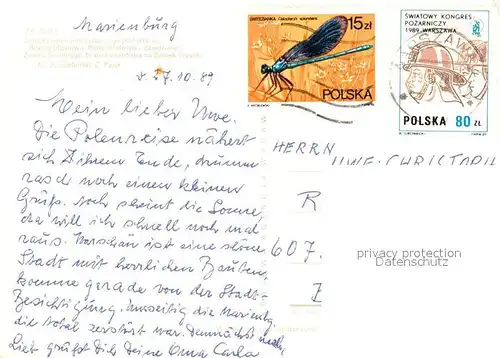 Marienburg
8. 7.10.89
Mein lieber Uwe.
Die Polenreise nähert
sich ihrem Ende, drum
rasch noch einen kleinen
Gruß. Noch scheint die Sonne,
da will ich schnell noch mal
raus. Warschau ist eine schöne
Stadt mit herrlichen Bauten,
komme gerade von der Stadt-
Besichtigung. Umseitig die Marienbg.
die total zerstört war. Demnächst mehr,
Lieb grüßt Dich Deine Oma Carla
ŚWITEZIANKA Calopteryx splendens
15 zł
POLSKA
ŚWIATOWY KONGRES
POŻARNICZY
1989 - WARSZAWA
POLSKA 80 ZŁ
HERRN
UWE CHRISTOPH
R
607.
privacy protection
Datenschutz